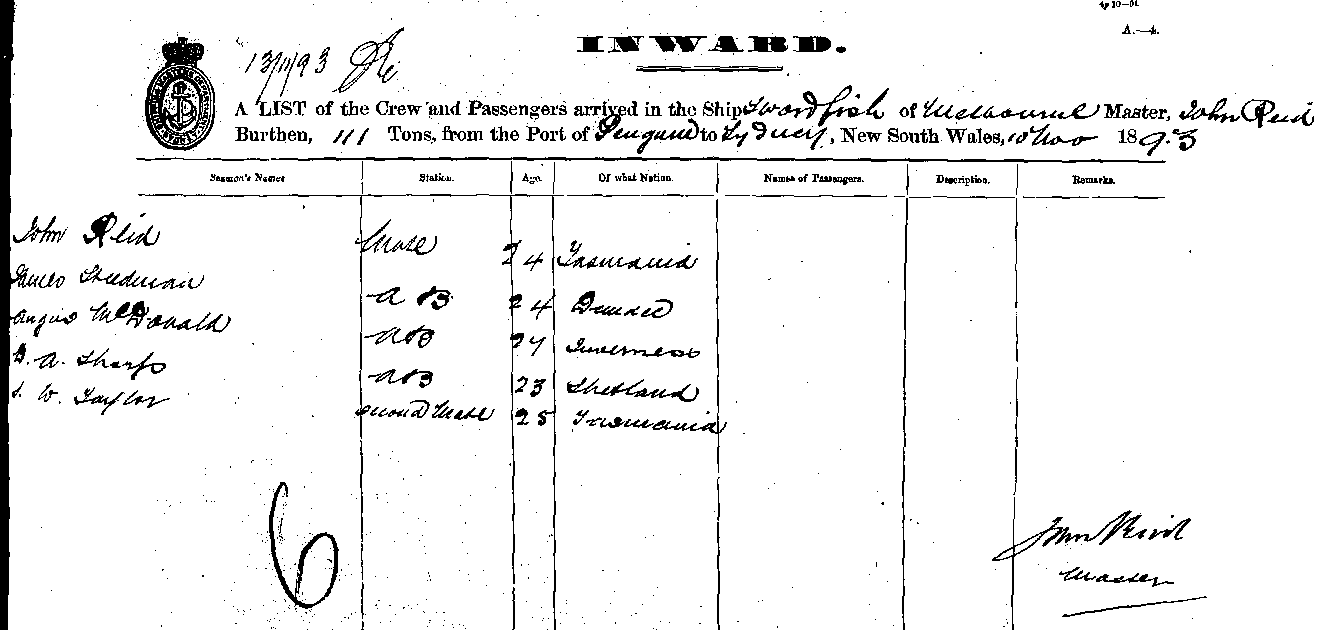 A.—4.
13/11/93
INWARD.
A LIST of the Crew and Passengers arrived in the Ship Swordfish of Melbourne Master, John Reid
Burthen, 111 Tons, from the Port of Penguin to Sydney, New South Wales, 10 Nov 1893
Seamen's Names Station. Age. Of what Nation. Names of Passengers. Description. Remarks.
John Reid Mate 24 Tasmania
James Steedman AB 24 Dundee
Angus McDonald AB 27 Inverness
A. Sharp AB 23 Shetland
W. Taylor Second Mate 25 Tasmania
6
John Reid
Master